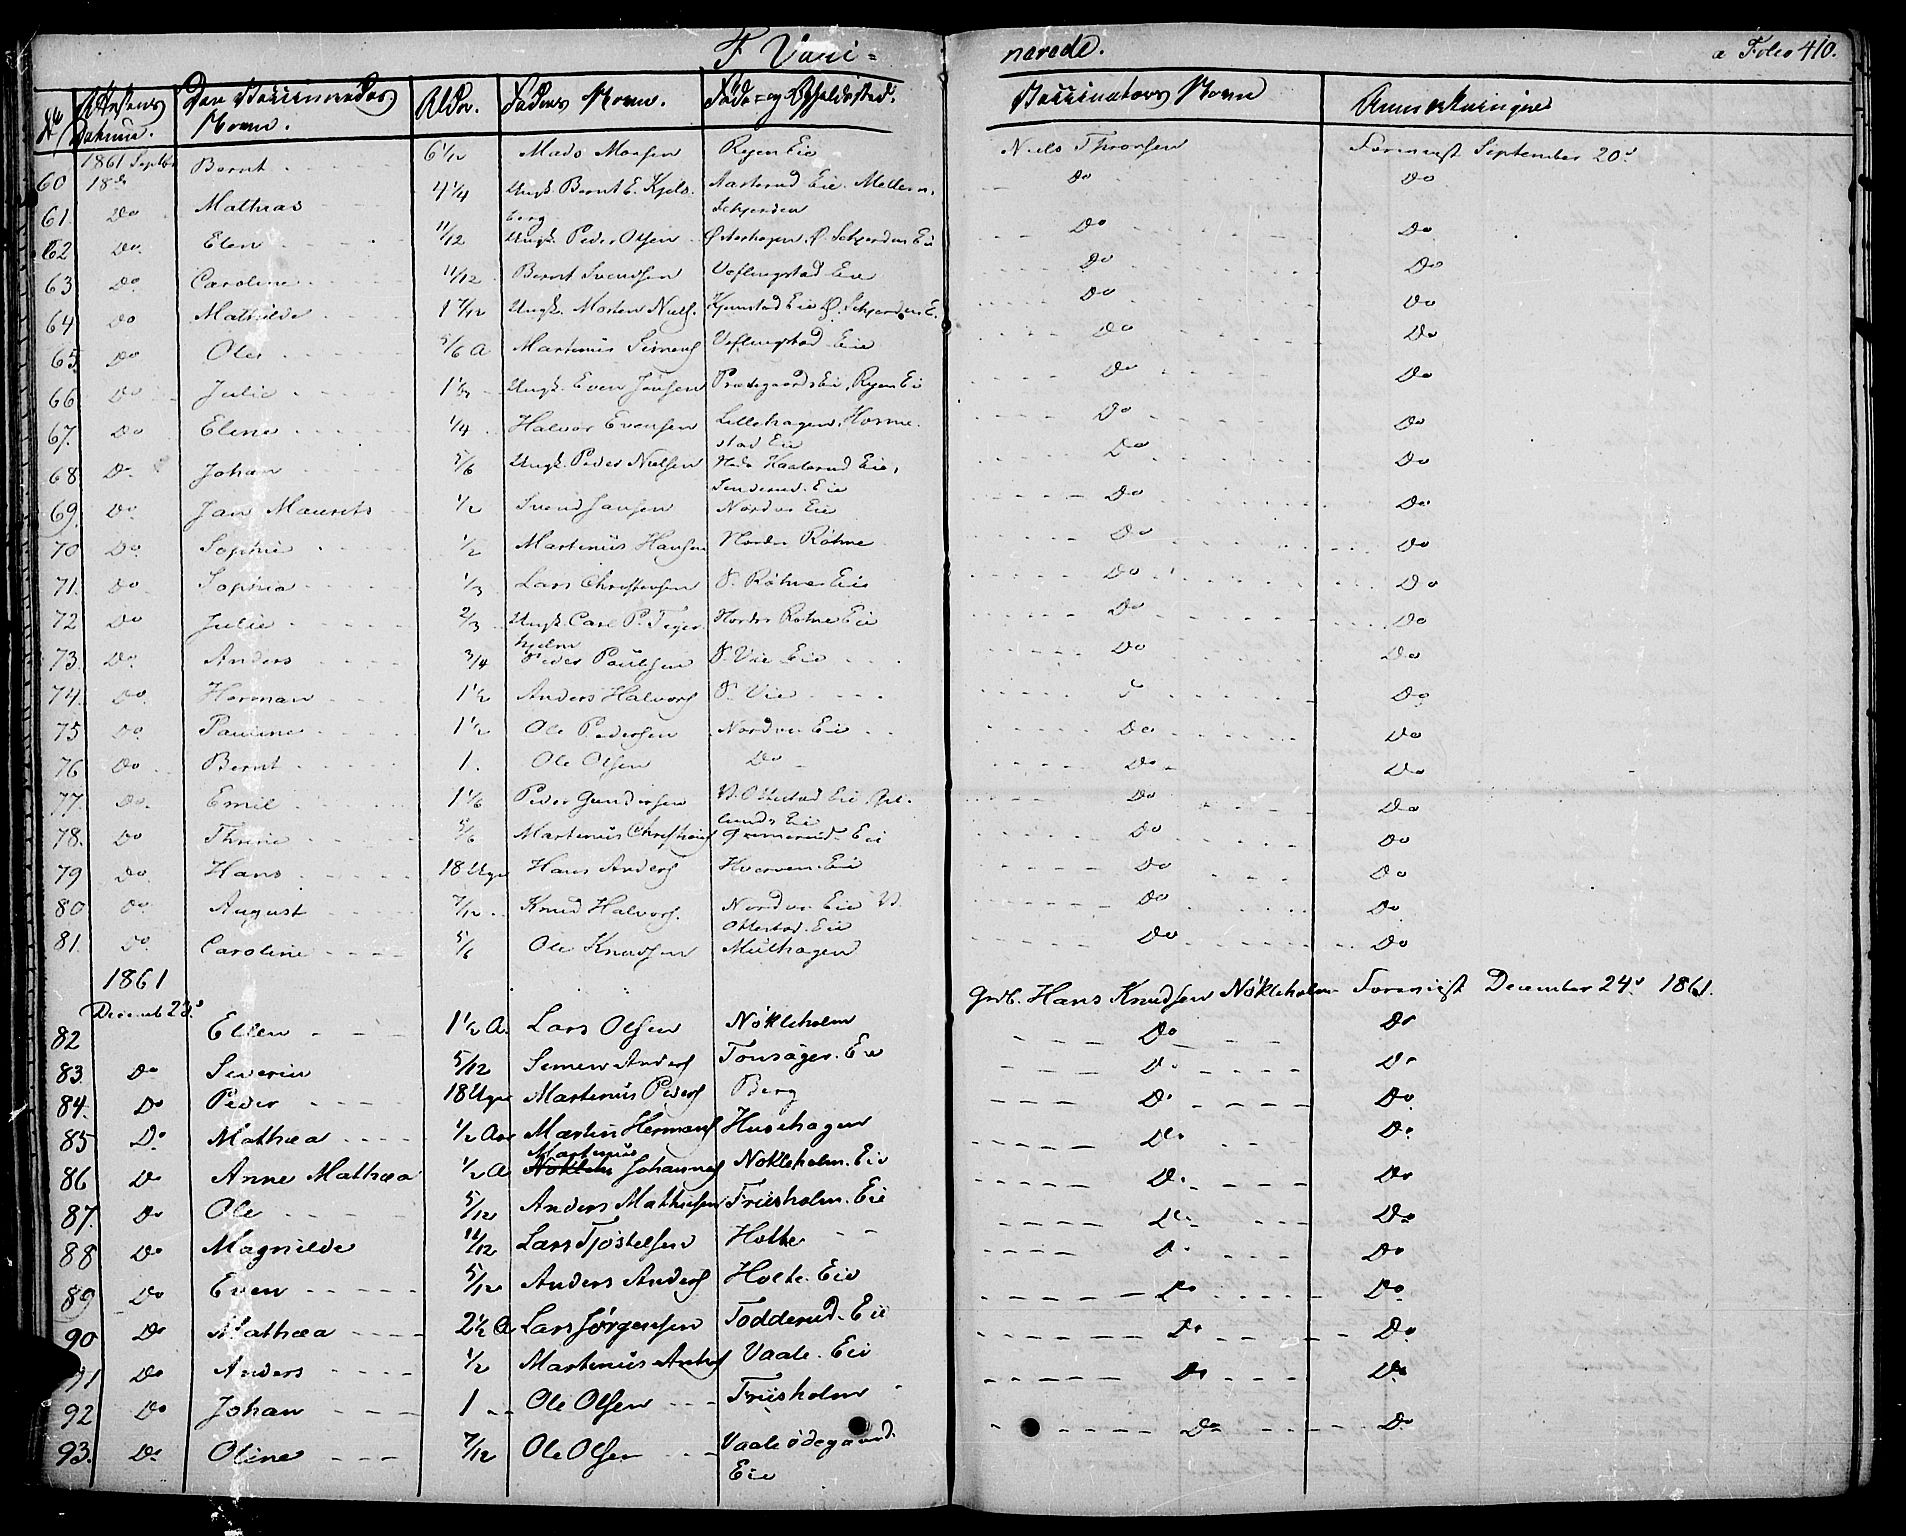 F. Vaci= nerede. a Folio 410.
No Attestens Datum. Den Vaccineredes Navn. Alder. Faders Navn. Føde- og Opholdssted. Vaccinators Navn Anmærkninger
60 1861 Septbr 18de Bernt 6 1/12 Mads Monsen Ryen Eie Niels Thronsen Foreviist September 20d
61. Do Mathias 4 1/4 Ungk. Bernt E. Kjels- Aasterud Eie. Mellem. Do Do
berg Schjerden
62 Do Elen 11/12 Ungk. Peder Olsen Østerhagen, Ø. Schjerden Ei Do Do
63 Do Caroline 11/12 Bernt Svendsen Veflingstad Eie Do Do
64 Do Mathilde 1 7/12 Ungk. Morten Niels. Kjemstad Eie Ø. Schjerden E. Do Do
65 Do Ole 5/6 A Martinus Simens Veflingstad Eie Do Do
66 Do Julie 1 1/2 Ungk. Even Jensen Prestegaards Ei, Ryen Ei Do Do
67. Do Eline 1/4 Halvor Evensen Lillehagen, Horne- Do Do
stad Eie
68 Do Johan 5/6 Ungk. Peder Nielsen Nedr. Kaaterud Eie, Do Do
Senderud. Eie
69. Do Jan Maurits 1/2 Svend Jansen Nordvi Eie Do Do
70 Do Sophie 1/2 Martinus Hansen Nordre Röhne Do Do
71. Do Sophia 1/3 Lars Christensen S. Röhne Eie Do Do
72 Do Julie 2/3 Ungk. Carl P. Teger- Nordre Röhne Eie Do Do
hjelm
73. Do Anders 3/4 Peder Paulsen S. Vie Eie Do Do
74. Do Herman 1 1/2 Anders Halvors S. Vie Do Do
75 Do Pauline 1 1/2 Ole Pedersen Nordvi Eie Do Do
76 Do Bernt 1. Ole Olsen Do Do Do
77. Do Emil 1 1/6 Peder Gundersen V. Ottestad Eie, Gri- Do Do
lunds Eie
78. Do Thrine 5/6 Martinus Christians Grimerud. Eie Do Do
79 Do Hans 18 Uger Hans Anders Hverven. Eie Do Do
80 Do August 7/12 Knud Halvors. Nordvi Eie V. Do Do
Ottestad. Eie
81. Do Caroline 5/6 Ole Knudsen Mulhagen Do Do
1861
Decemb 23d Grdb. Hans Knudsen Nökleholm Foreviist December 24d 1861.
82 Ellen 1 1/2 A. Lars Olsen Nökleholm Do Do
83. Do Severin 5/12 Simen Anders Tonsager. Eie Do Do
84. Do Peder 18 Uger Martinus Peders Berg Do Do
85 Do Mathea 1/2 Aar Martin Hermans Husehagen Do Do
Martinus
86 Do Anne Mathea 1/2 A Johannes Nökleholm. Eie Do Do
87. Do Ole 5/12 Anders Mathisen Friisholm. Eie Do Do
88 Do Magnilde 11/12 Lars Tjöstelsen Holte Do Do
89 Do Even 5/12 Anders Anders Holte. Eie Do Do
90 Do Mathea 2 1/2 A Lars Jörgensen Todderud. Eie Do Do
91 Do Anders 1/2 Martinus Anders Vaale. Eie Do Do
92 Do Johan 1 Ole Olsen Friisholm
93. Do Oline 7/12 Ole Olsen Vaaleødegaard. Do Do
Eie